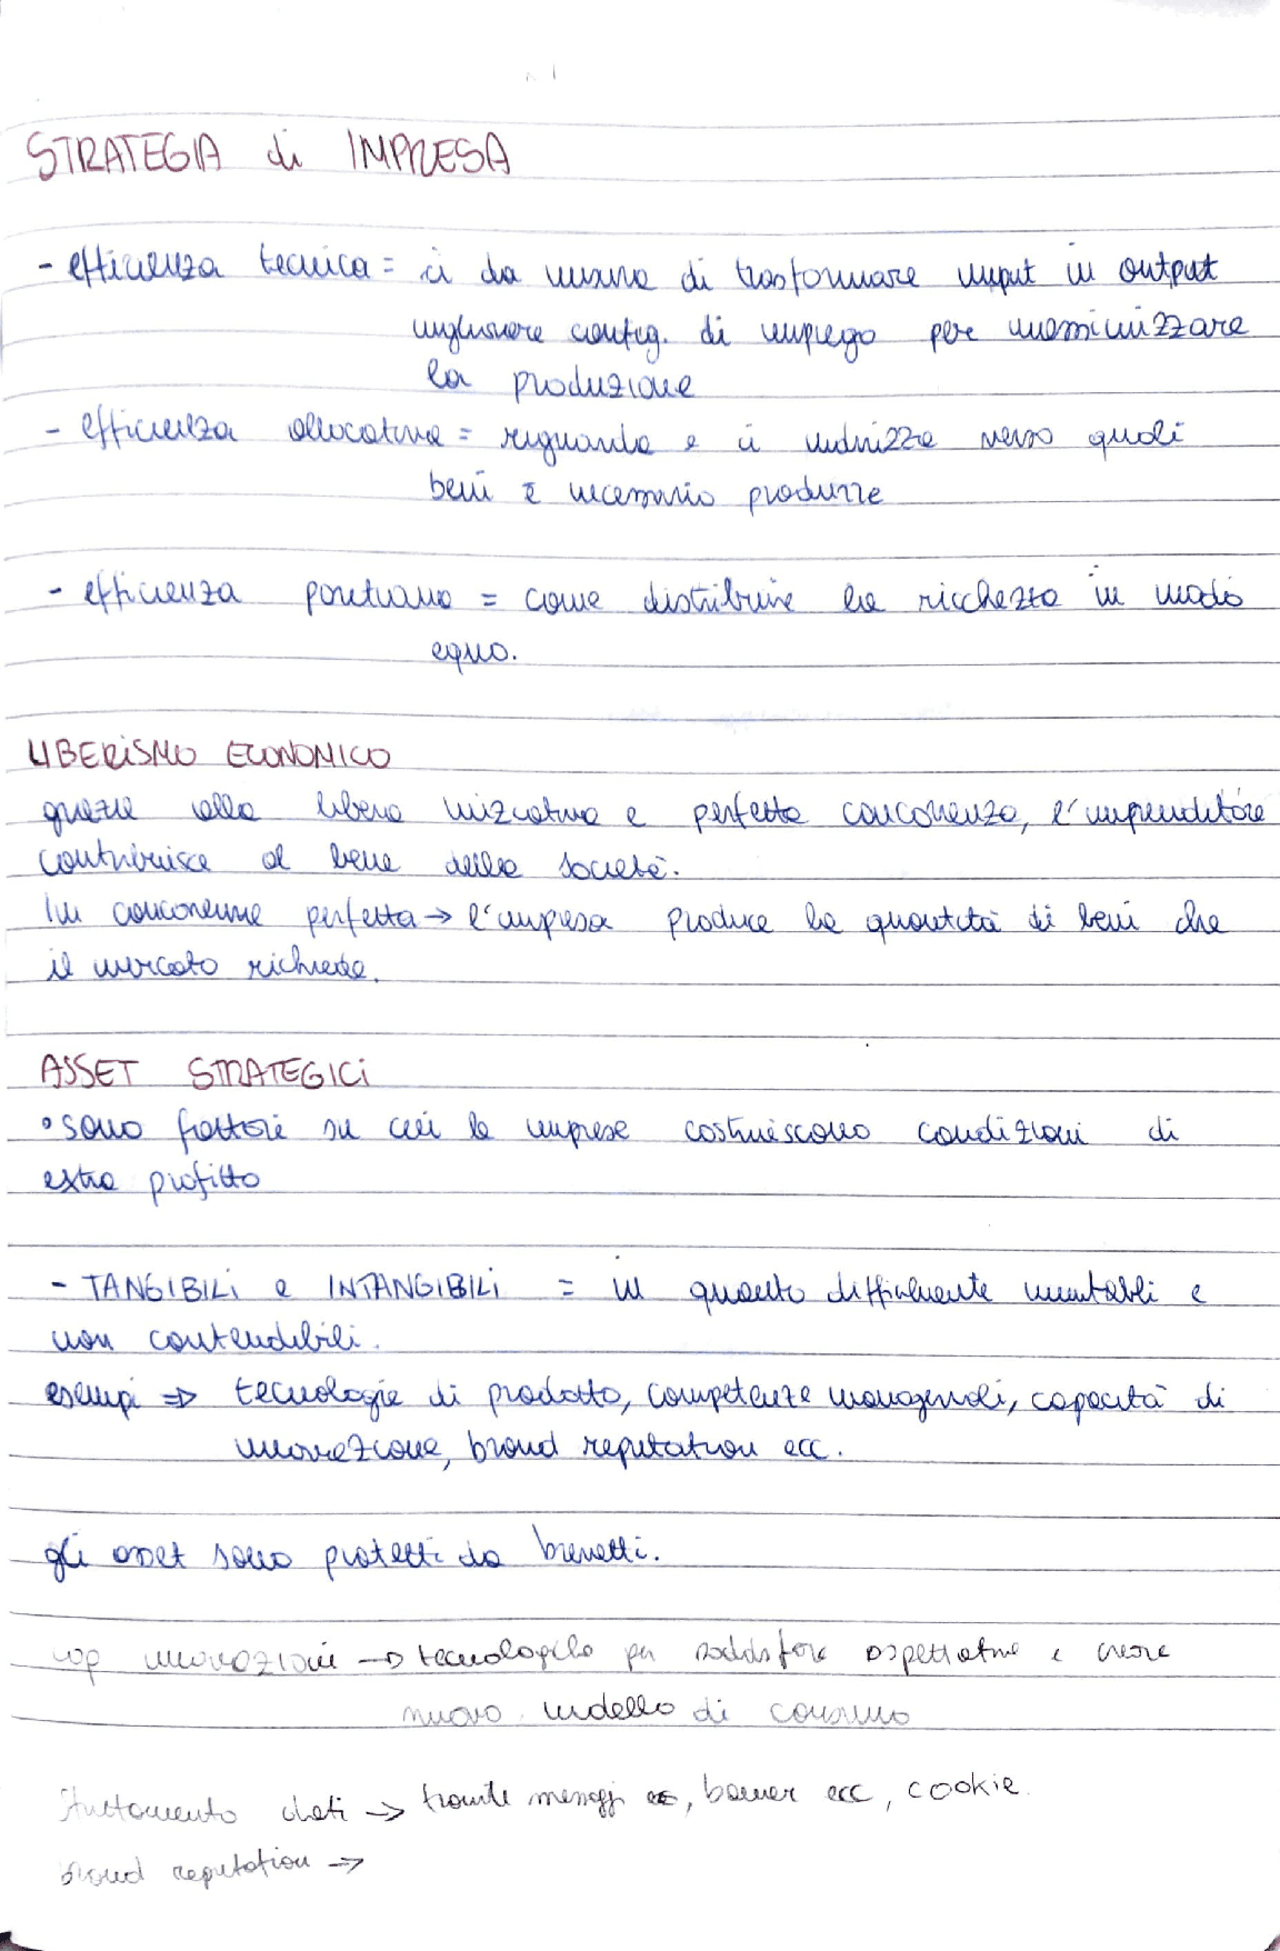 STRATEGIA di IMPRESA
- efficienza tecnica = ci da misura di trasformare input in output
migliore config. di impiego per massimizzare
la produzione
- efficienza allocativa = riguarda e ci indirizza verso quali
beni è necessario produrre
- efficienza = come distribuire la ricchezza in modo
equo.
LIBERISMO ECONOMICO
grazie alla libera iniziativa e perfetta concorrenza, l'imprenditore
contribuisce al bene della società.
In concorrenza perfetta → l'impresa produce la quantità di beni che
il mercato richiede.
ASSET STRATEGICI
• sono fattori su cui le imprese costruiscono condizioni di
extra profitto
- TANGIBILI e INTANGIBILI = in quanto difficilmente imitabili e
non contendibili.
esempi ⇒ tecnologie di prodotto, competenze manageriali, capacità di
innovazione, brand reputation ecc.
gli asset sono protetti da brevetti.
cap innovazioni → tecnologiche per soddisfare aspettative e creare
nuovo modello di consumo
sfruttamento dati → tramite messaggi, banner ecc, cookie.
brand reputation →